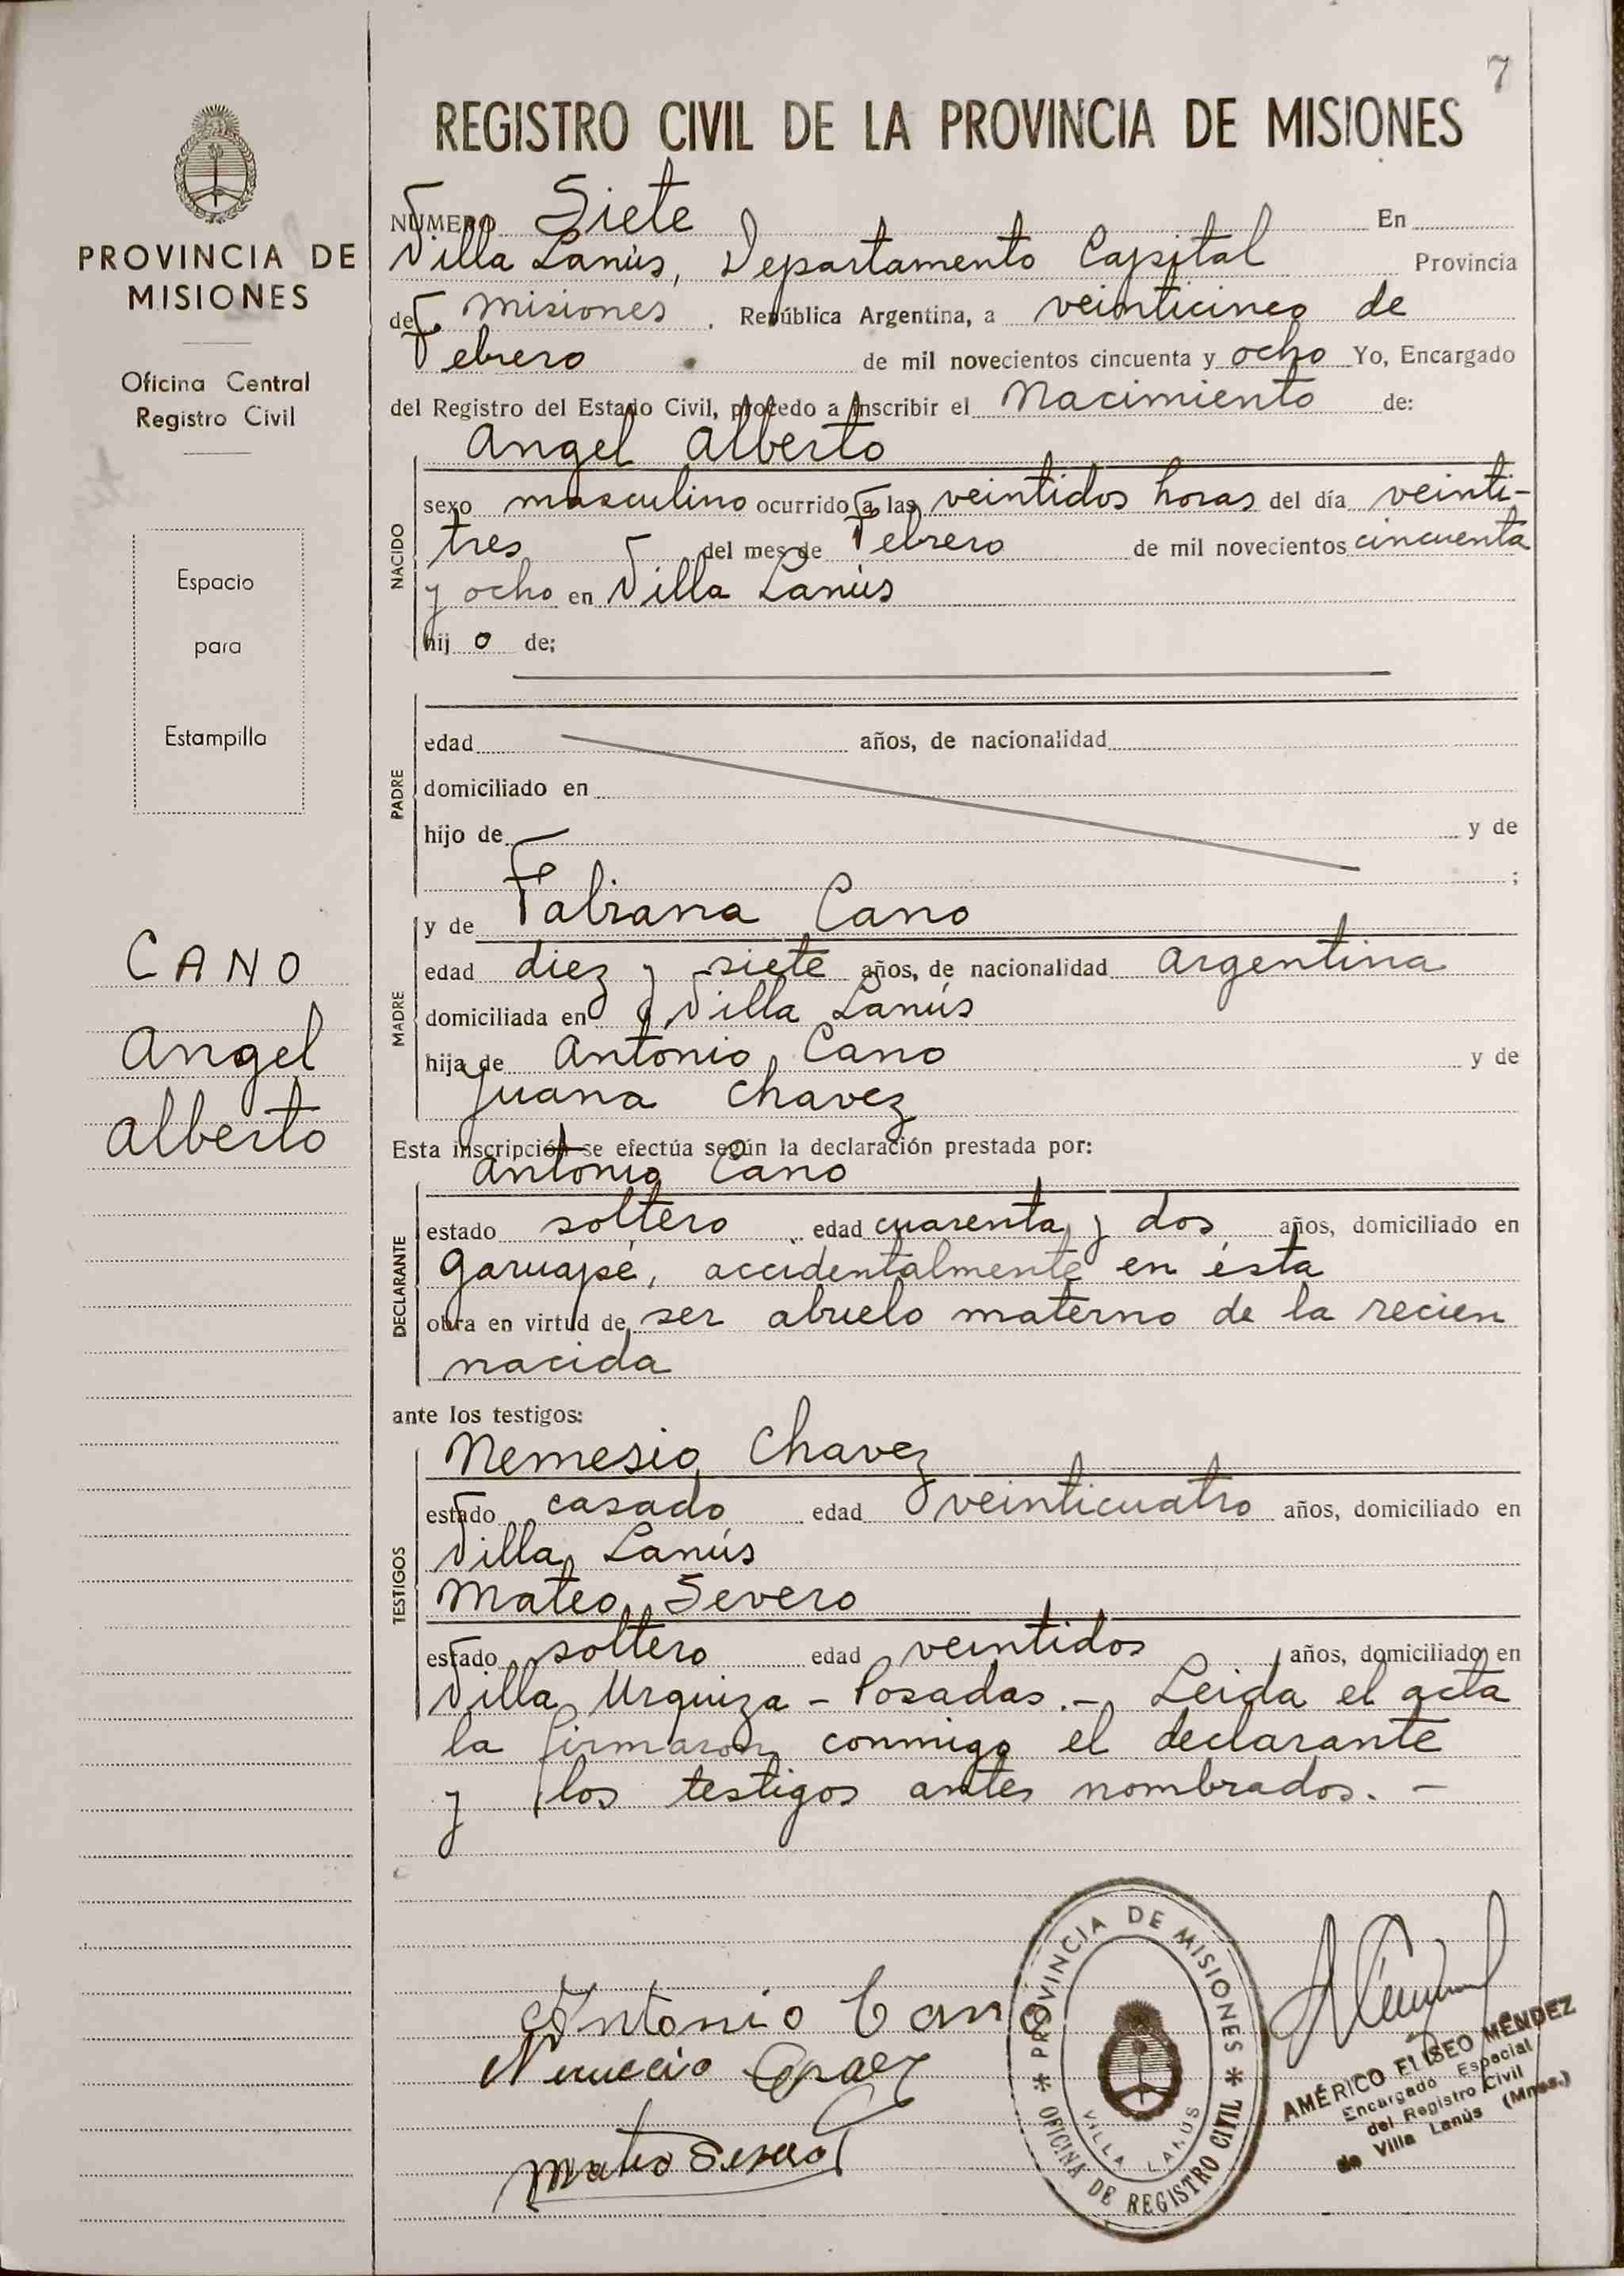 7
REGISTRO CIVIL DE LA PROVINCIA DE MISIONES
PROVINCIA DE
MISIONES
Oficina Central
Registro Civil
Espacio
para
Estampilla
CANO
Angel
Alberto
NUMERO Siete En
Villa Lanús, Departamento Capital Provincia
de Misiones . República Argentina, a veinticinco de
Febrero de mil novecientos cincuenta y ocho Yo, Encargado
del Registro del Estado Civil, procedo a inscribir el Nacimiento de:
Angel Alberto
NACIDO
sexo masculino ocurrido a las veintidos horas del día veinti-
tres del mes de Febrero de mil novecientos cincuenta
y ocho en Villa Lanús
hij o de;
PADRE
edad años, de nacionalidad
domiciliado en
hijo de y de
;
MADRE
y de Fabiana Cano
edad diez y siete años, de nacionalidad Argentina
domiciliada en Villa Lanús
hija de Antonio Cano y de
Juana Chavez
Esta inscripción se efectúa según la declaración prestada por:
Antonio Cano
DECLARANTE
estado soltero edad cuarenta y dos años, domiciliado en
Garuapé, accidentalmente en ésta
obra en virtud de ser abuelo materno de la recien
nacida
ante los testigos:
TESTIGOS
Nemesio Chavez
estado casado edad veinticuatro años, domiciliado en
Villa Lanús
Mateo Severo
estado soltero edad veintidos años, domiciliado en
Villa Urquiza - Posadas.- Leida el acta
la firmaron conmigo el declarante
y los testigos antes nombrados. -
Antonio Cano
Mateo Severo
PROVINCIA DE MISIONES
OFICINA DE REGISTRO CIVIL
VILLA LANUS
AMÉRICO ELISEO MÉNDEZ
Encargado Especial
del Registro Civil
de Villa Lanús (Mnes.)